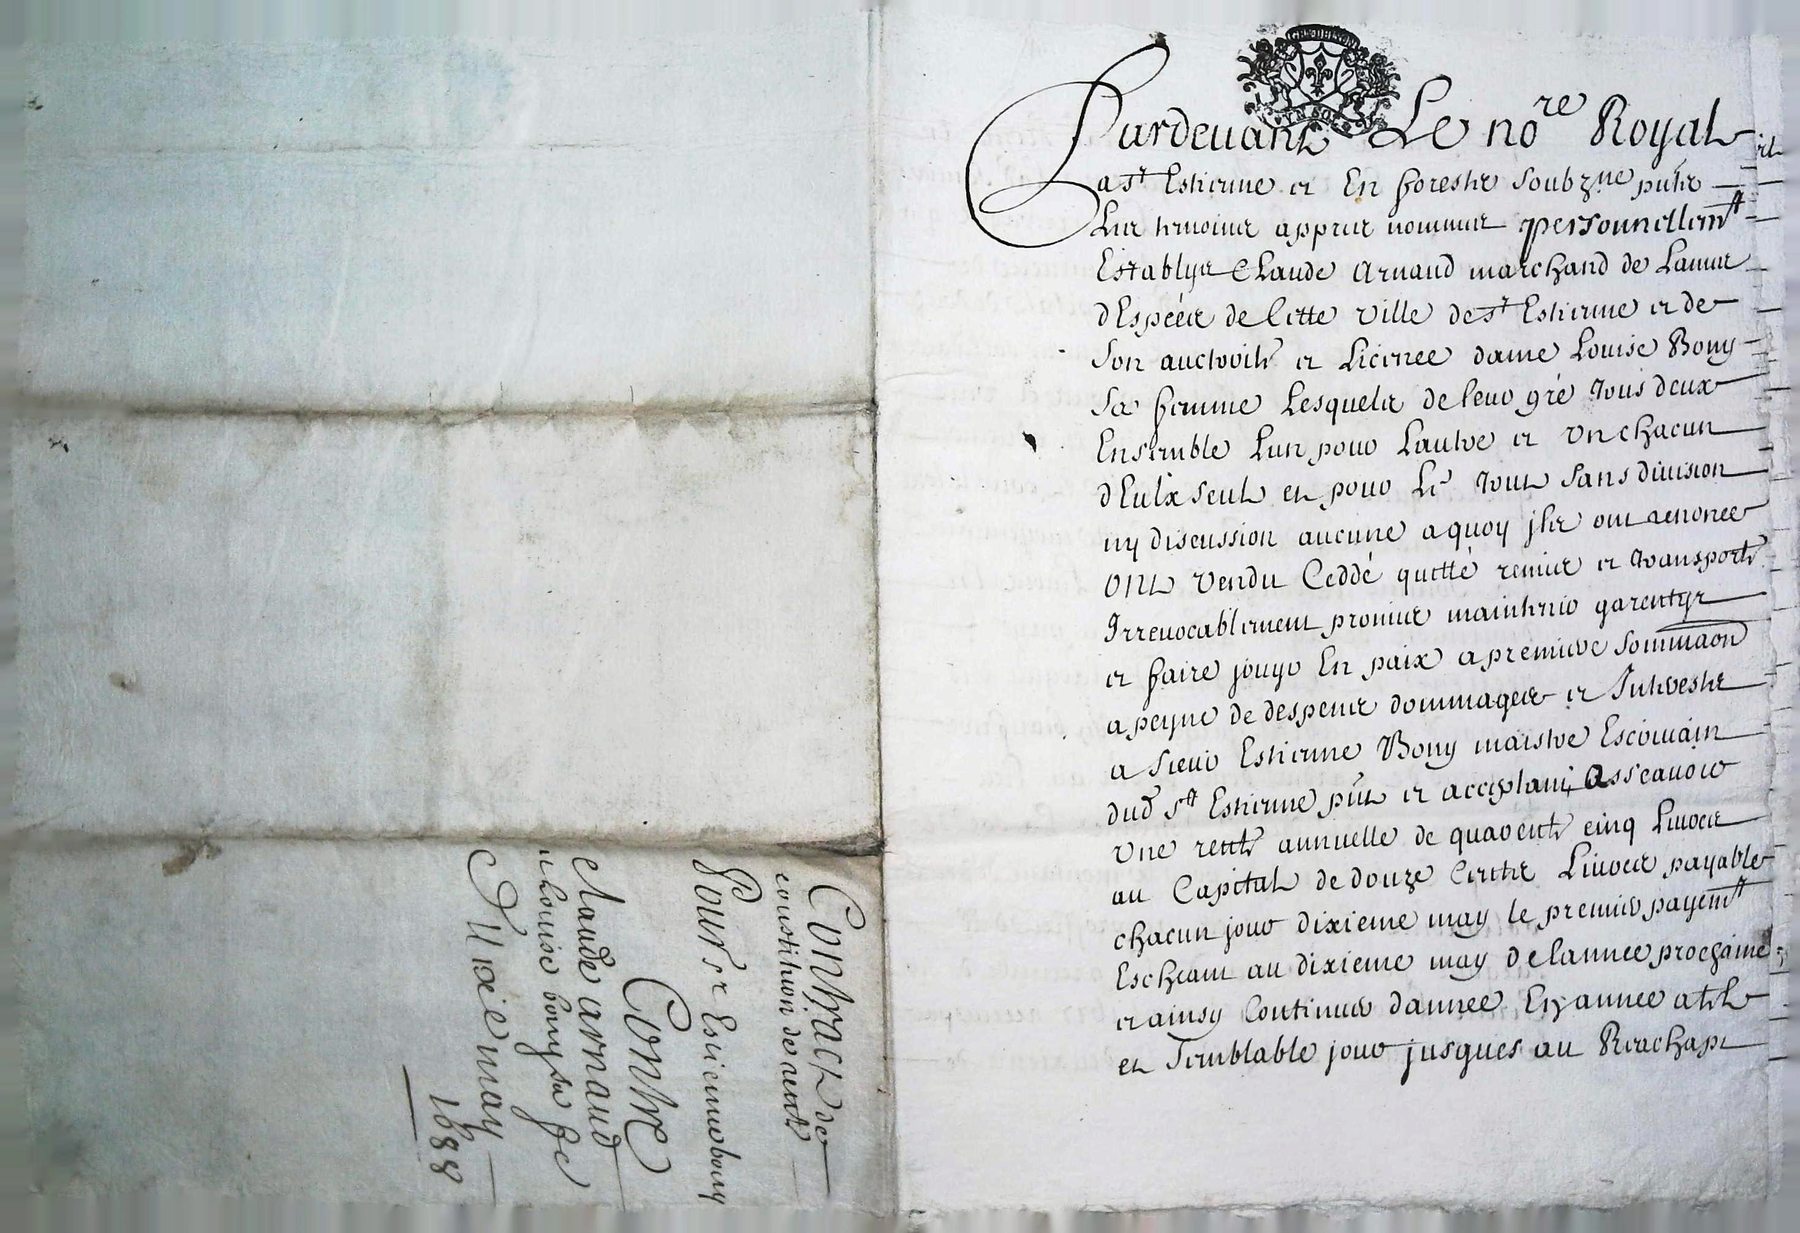 Contract de
constitution de rente
Pour sr Estienne bony
Contre
Claude arnaud
et Louise bony sa fe
Du xe may
1688
Pardevant Le nore Royal
a st Estienne et En foretz soubzne pntz
Les temoins appres nommes personnellemt
Establys Claude Arnaud marchand de Lames
d'Espées de Cette ville de st Estienne et de
son auctorité et Licence dame Louise Bony
sa femme Lesquels de leur gré tous deux
Ensemble Lun pour Lautre et un chacun
d'Eulx seul et pour Le tout sans division
ny discussion aucune a quoy jlz ont renoncé
ont vendu Ceddé quitté remis et transporté
Irrevocablement promis maintenir garentyr
et faire jouyr En paix a premiere sommaon
a peyne de despens dommages et Interestz
a sieur Estienne Bony maistre Escrivain
dud st Estienne pnt et acceptant, asscavoir
une rente annuelle de quarente cinq Livres
au Capital de douze Centz Livres payable
chacun jour dixieme may le premier payemt
Escheant au dixieme may de lannee prochaine
et ainsy Continuer dannee En annee a tel
et semblable jour jusques au Reachapt